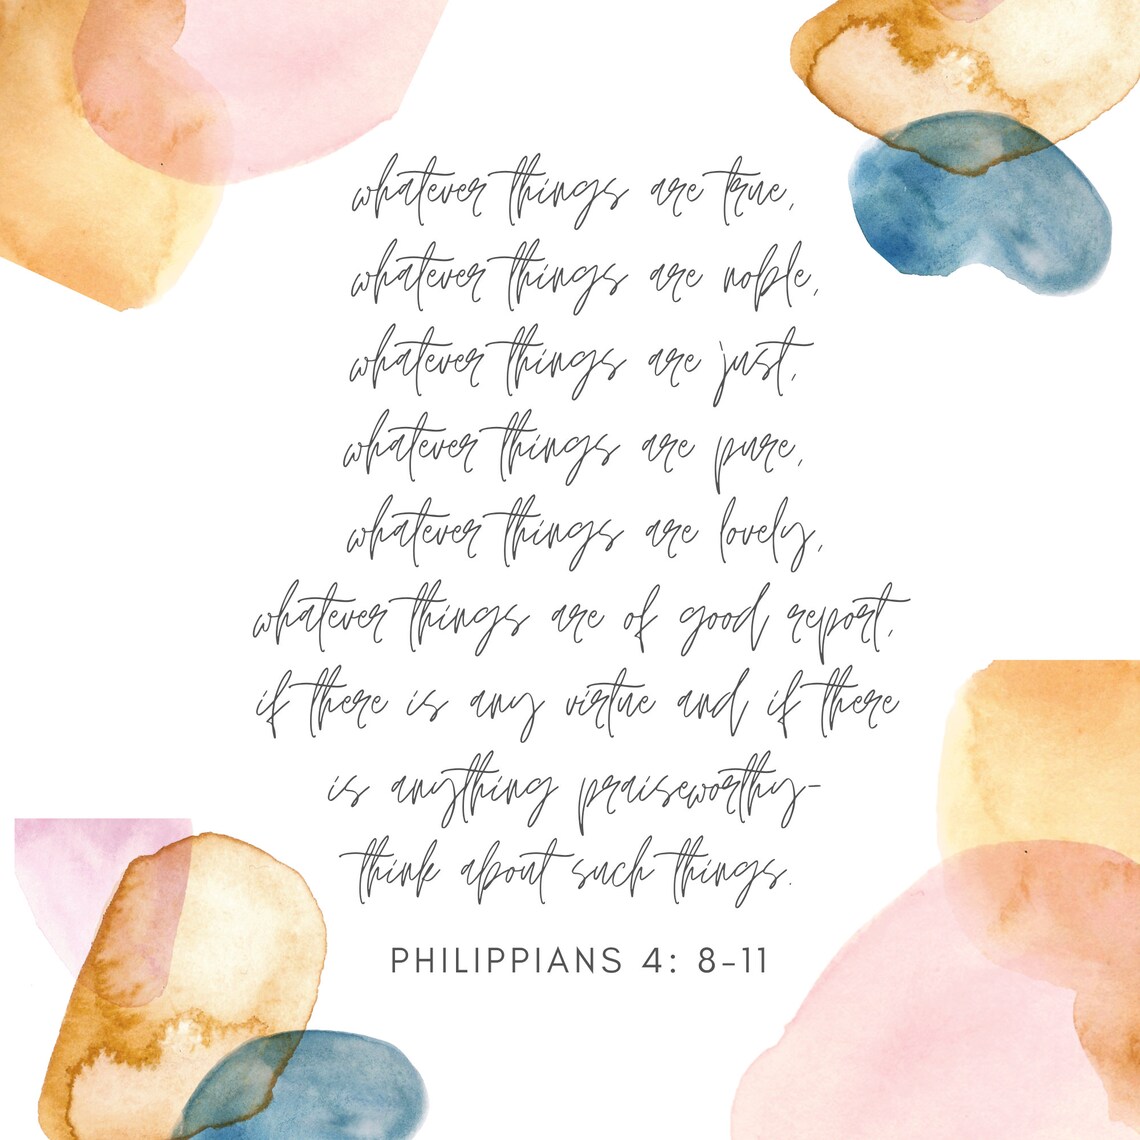 whatever things are true,
whatever things are noble,
whatever things are just,
whatever things are pure,
whatever things are lovely,
whatever things are of good report,
if there is any virtue and if there
is anything praiseworthy-
think about such things.
PHILIPPIANS 4: 8-11